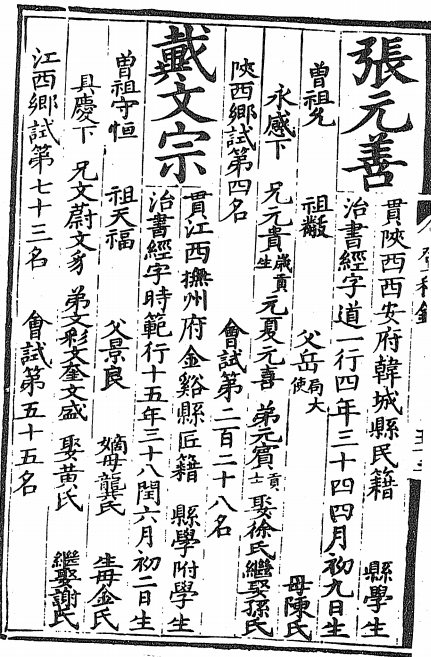 張元善
貫陝西西安府韓城縣民籍 縣學生
治書經字道一行四年三十四四月初九日生
曾祖允 祖敾 父岳 局大使 母陳氏
永感下 兄元貴 歲貢生 元夏元喜 弟元賓 貢士 娶徐氏繼娶孫氏
陝西鄉試第四名 會試第二百二十八名
戴文宗
貫江西撫州府金谿縣匠籍 縣學附學生
治書經字時範行十五年三十八閏六月初二日生
曾祖守恒 祖天福 父景良 嫡母龔氏 生母金氏
具慶下 兄文蔚文豸 弟文彩文奎文盛 娶黃氏 繼娶謝氏
江西鄉試第七十三名 會試第五十五名